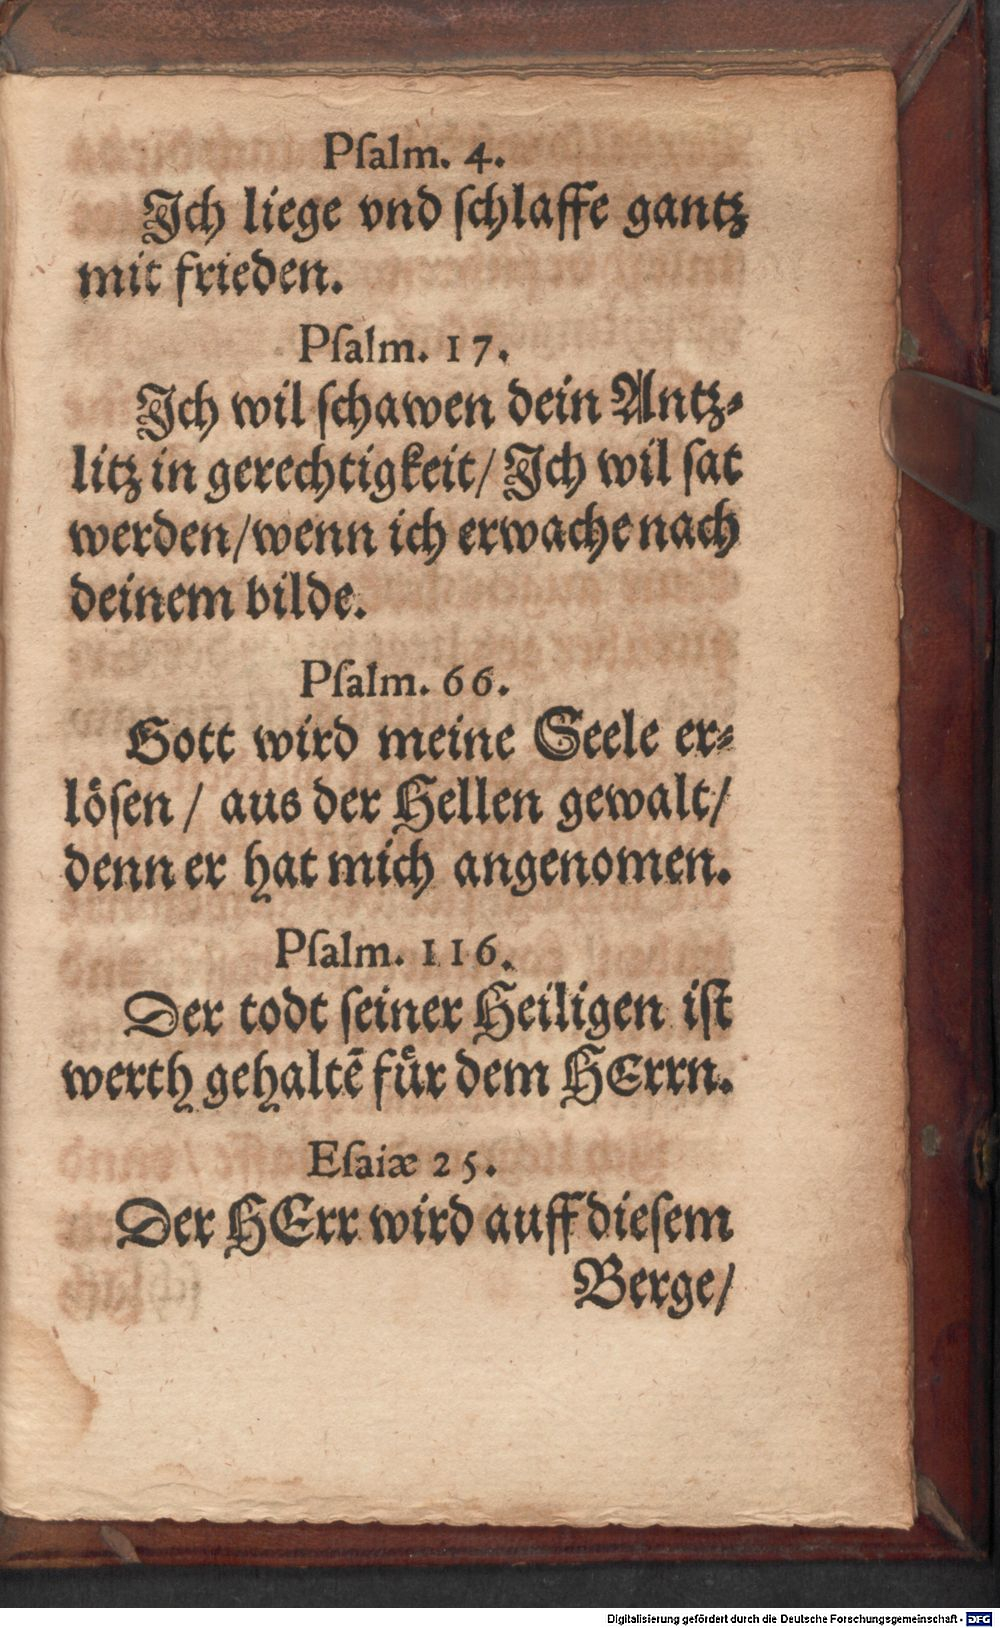 Pſalm. 4.
Ich liege vnd ſchlaffe gantz
mit frieden.
Pſalm. 17.
Ich wil ſchawen dein Antz⸗
litz in gerechtigkeit/ Ich wil ſat
werden/wenn ich erwache nach
deinem bilde.
Pſalm. 66.
Gott wird meine Seele er⸗
löſen / aus der Hellen gewalt/
denn er hat mich angenomen.
Pſalm. 116.
Der todt ſeiner Heiligen iſt
werth gehaltē fuͤr dem HErrn.
Eſaiæ 25.
Der HErr wird auff dieſem
Berge/
Digitalisierung gefördert durch die Deutsche Forschungsgemeinschaft - DFG